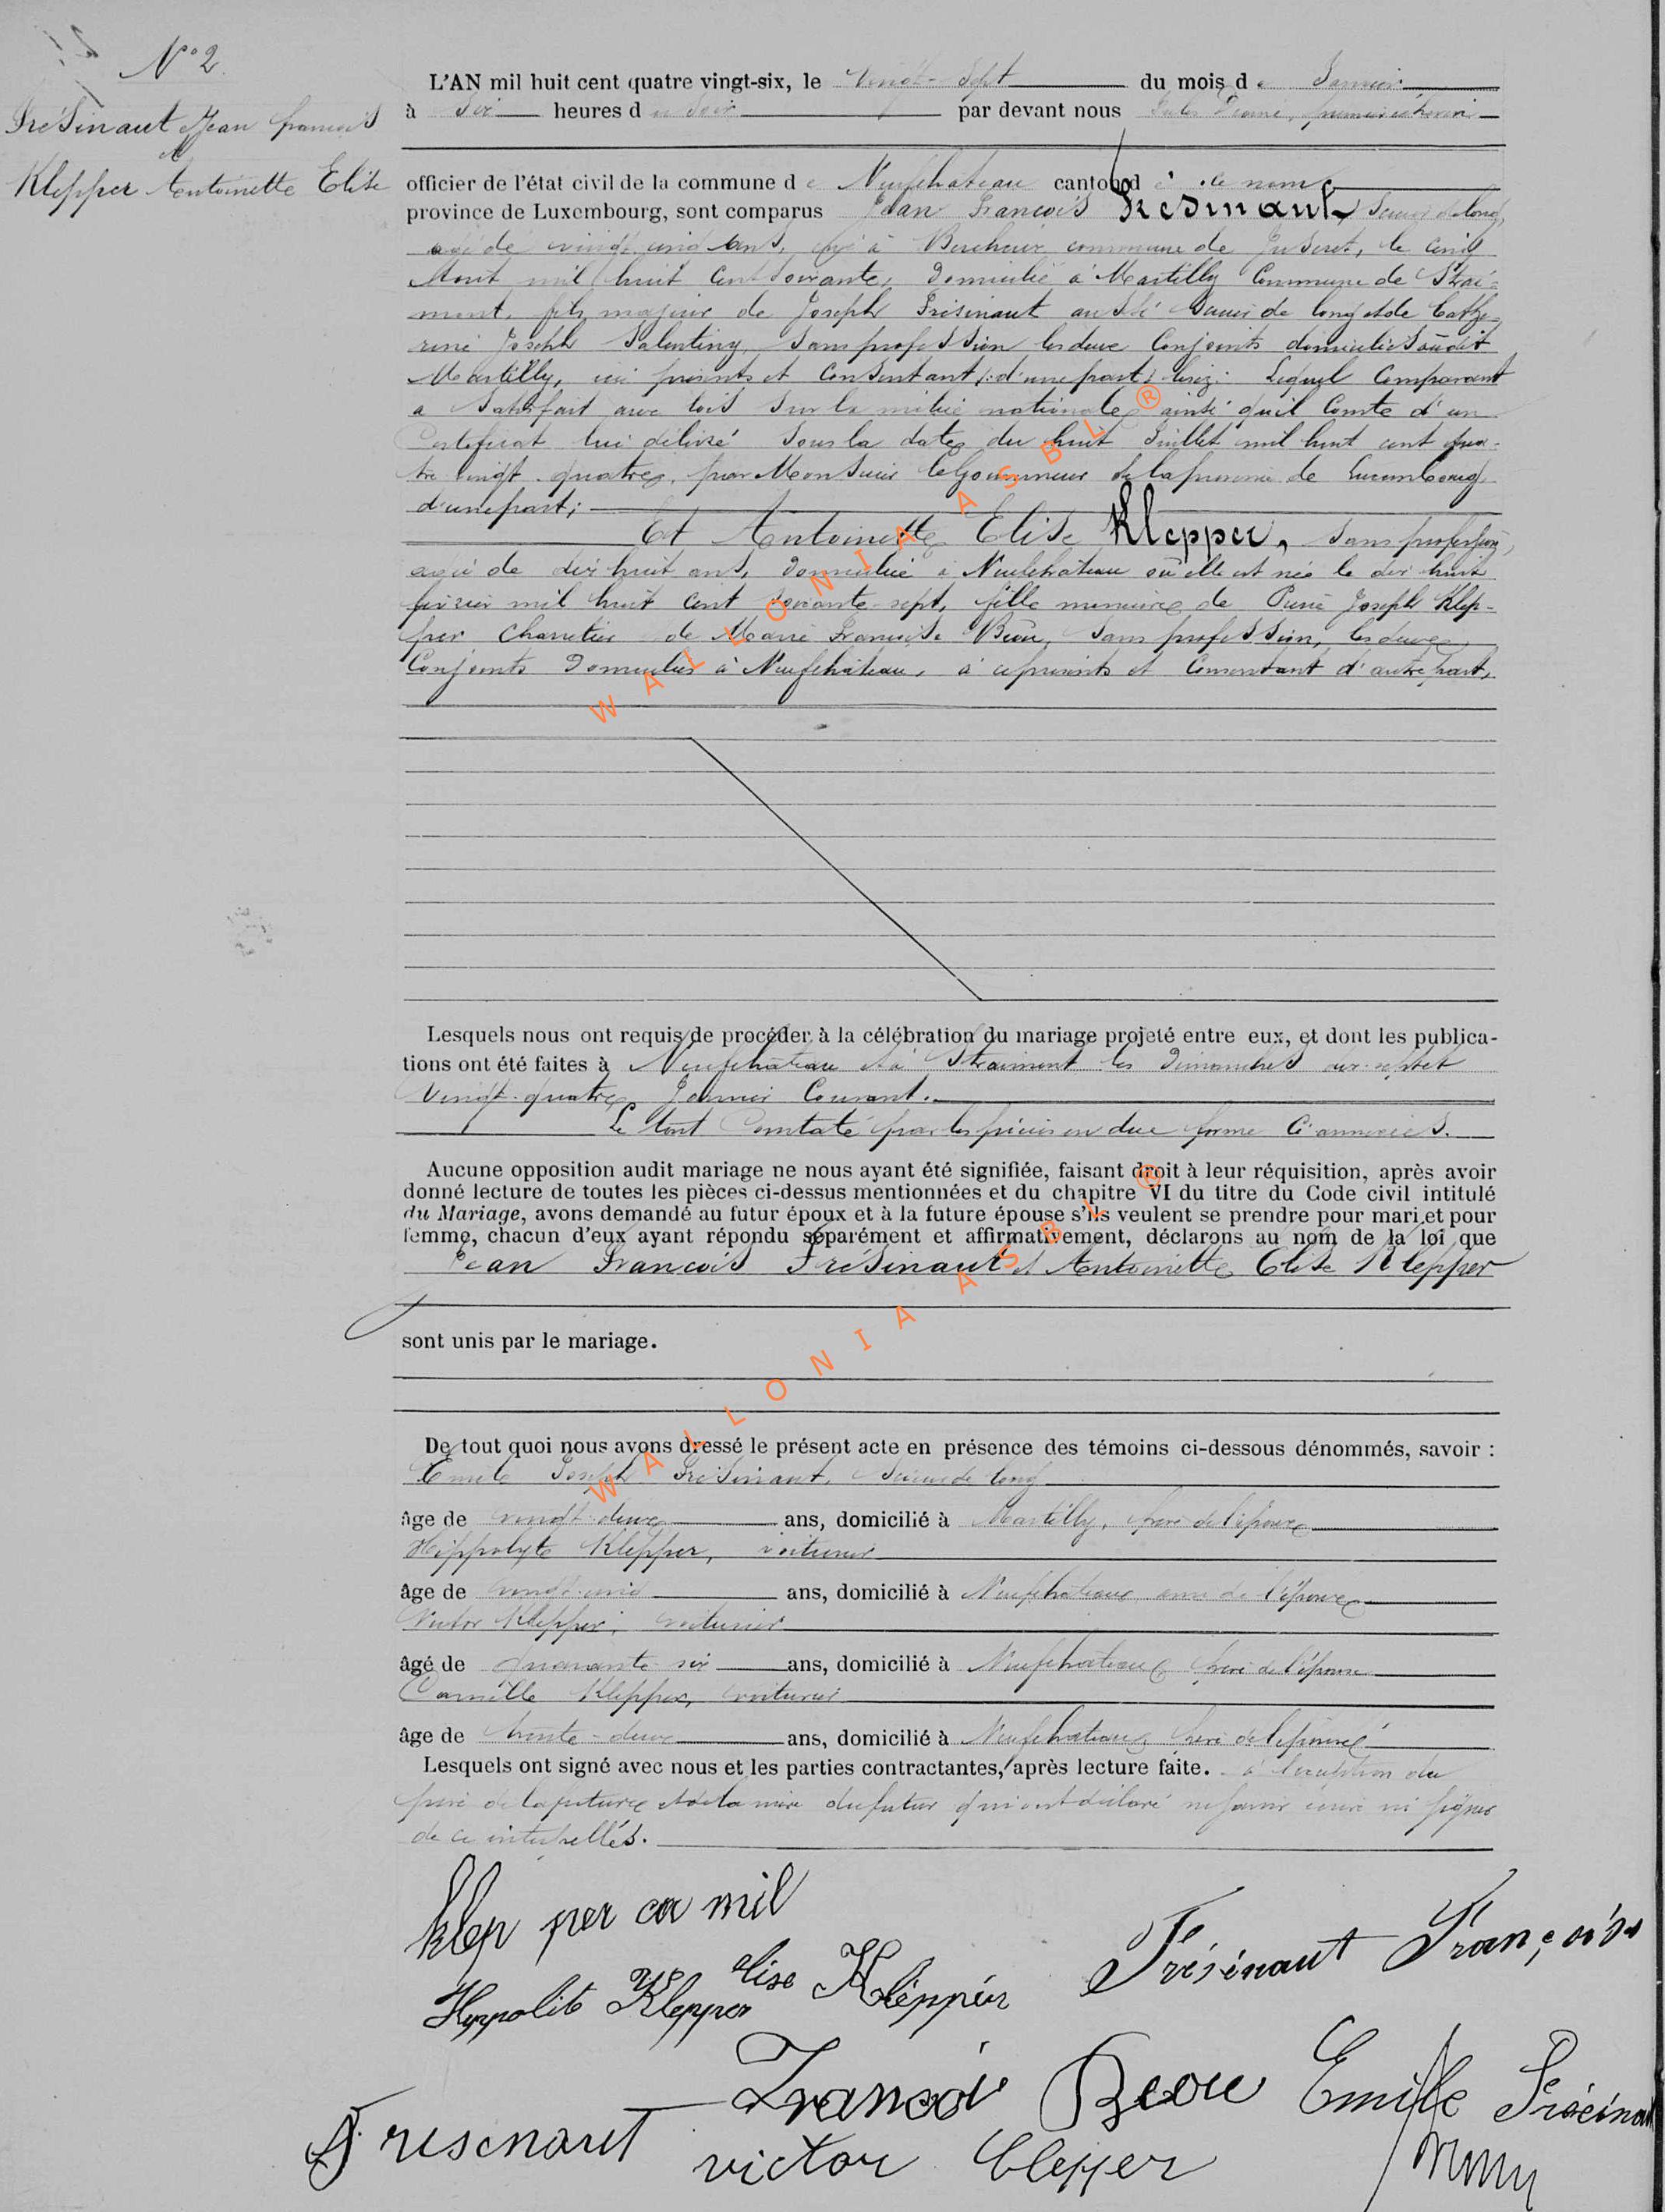 N° 2
Frésinaut Jean françois
et
Klepper Antoinette Elise
L'AN mil huit cent quatre vingt-six, le Vingt-Sept du mois de Janvier
à Six heures du Soir par devant nous Jules premier échevin
officier de l'état civil de la commune de Neufchateau canton d ce nom
province de Luxembourg, sont comparus Jean François Frésinaut, Scieur de long,
agé de vingt cinq ans, né à Bercheux commune de Juseret, le cinq
Aout mil huit Cent Soixante, Domicilié à Martilly Commune de Strai-
mont, fils majeur de Joseph Frésinaut aussi Scieur de long et de Cathe-
rine Joseph Salentiny, Sans profession les deux Conjoints domiciliés audit
Martilly, ici présents et Consentant (: d'une part :) lisez: Lequel Comparant
a Satisfait aux lois Sur la milice nationale ainsi qu'il Conste d'un
Certificat lui délivré Sous la date du huit Juillet mil huit cent qua-
tre vingt-quatre, par Monsieur le Gouverneur de la province de Luxembourg
d'une part;
Et Antoinette Elise Klepper, Sans profession,
agée de dix huit ans, Domiciliée à Neufchâteau où elle est née le dix huit
février mil huit Cent Soixante-sept, fille mineure de Pierre Joseph Klep-
per Charretier de Marie Françoise Sans profession, les deux
Conjoints Domiciliés à Neufchâteau, à ce présents et Consentant d'autre part,
Lesquels nous ont requis de procéder à la célébration du mariage projeté entre eux, et dont les publica-
tions ont été faites à Neufchâteau et à Straimont les Dimanches dix-sept et
Vingt-quatre Janvier Courant.
Le tout Constaté par les pièces en due forme ci annexées.
Aucune opposition audit mariage ne nous ayant été signifiée, faisant droit à leur réquisition, après avoir
donné lecture de toutes les pièces ci-dessus mentionnées et du chapitre VI du titre du Code civil intitulé
du Mariage, avons demandé au futur époux et à la future épouse s'ils veulent se prendre pour mari et pour
femme, chacun d'eux ayant répondu séparément et affirmativement, déclarons au nom de la loi que
Jean François Frésinaut et Antoinette Elise Klepper
sont unis par le mariage.
De tout quoi nous avons dressé le présent acte en présence des témoins ci-dessous dénommés, savoir :
Emile Joseph Frésinaut, Scieur de long
âge de vingt-deux ans, domicilié à Martilly, frère de l'époux
Hippolyte Klepper, voiturier
âge de vingt-cinq ans, domicilié à Neufchateau de l'épouse
Victor Klepper, voiturier
âgé de quarante six ans, domicilié à Neufchateau frère de l'épouse
Camille Klepper, voiturier
âge de trente-deux ans, domicilié à Neufchateau frère de l'épouse
Lesquels ont signé avec nous et les parties contractantes, après lecture faite. à l'exception du
père de la future et de la mère du futur qui ont déclaré ne savoir écrire ni signer
de ce interpellés.
klep per ca mil
Hyppolite Klepper
elise Klepper
Frésinaut François
François Beou
Emille Frésinau
J Fresinaut
victor Clepper
WALLONIA ASBL ®
WALLONIA ASBL ®